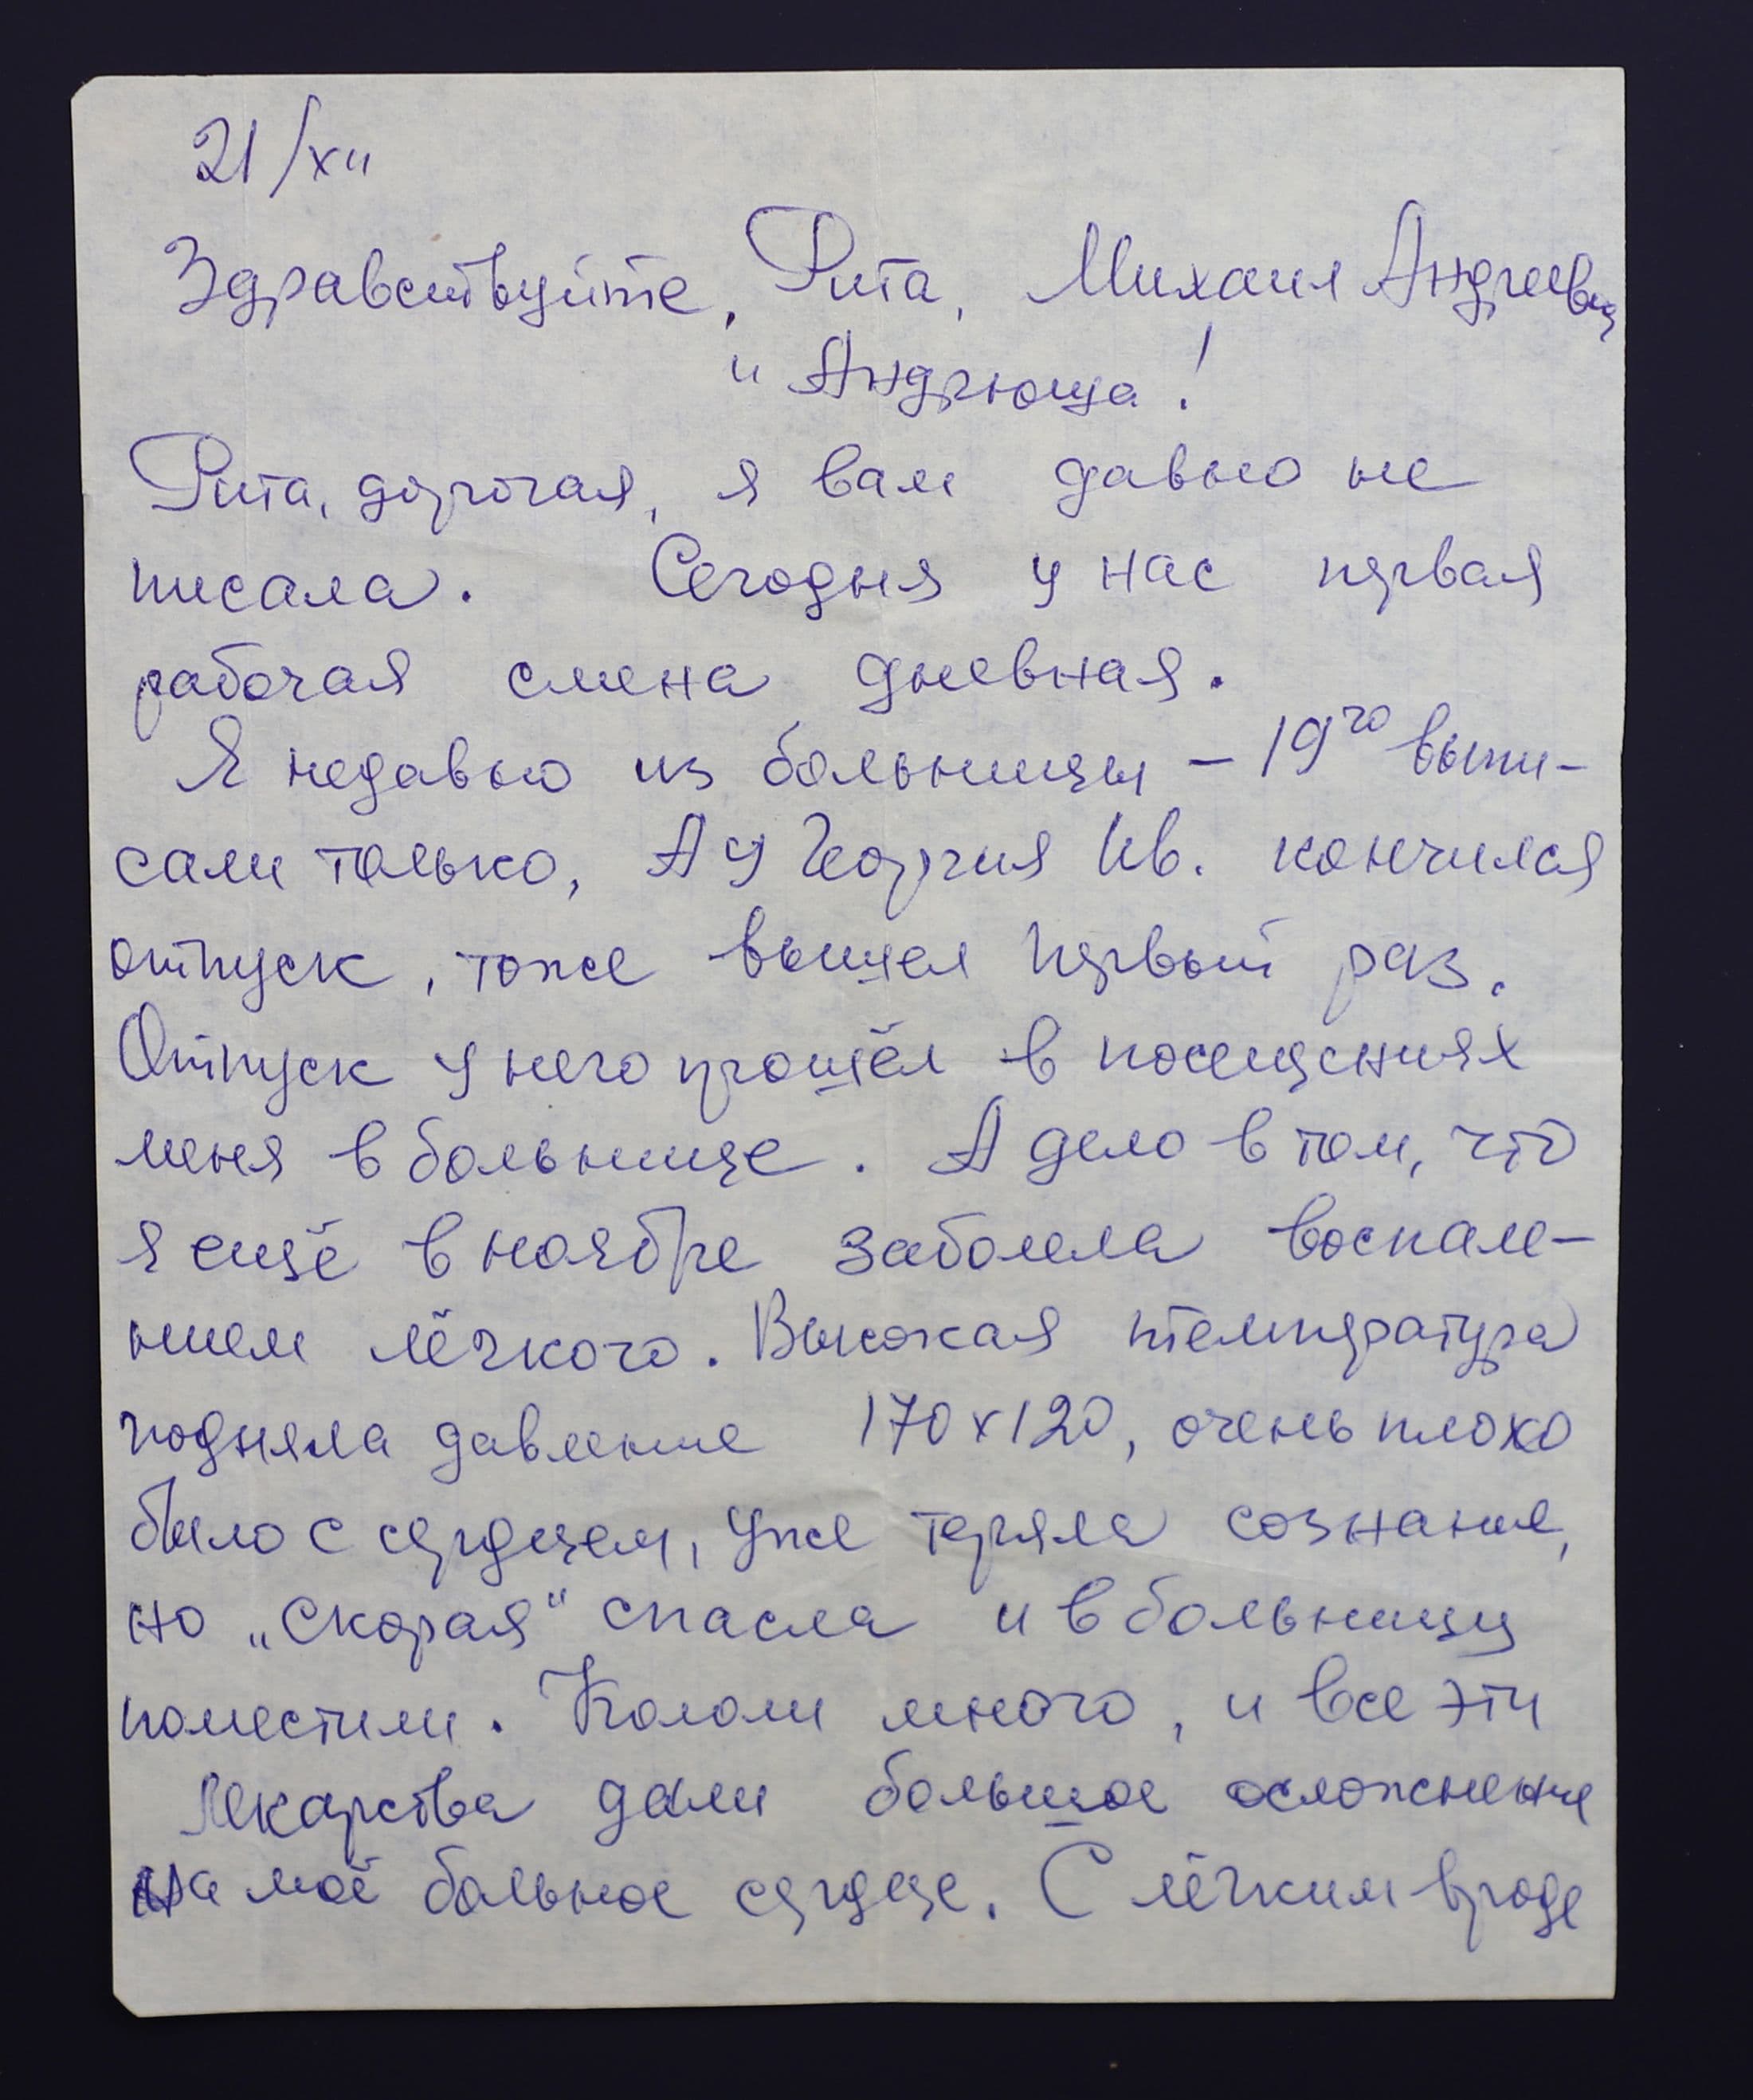 21/XII
Здравствуйте, Рита, Михаил Андреевич
и Андрюша!
Рита, дорогая, я вам давно не
писала. Сегодня у нас первая
рабочая смена дневная.
Я недавно из больницы – 19го выпи-
сали только, А у Георгия Ив. кончился
отпуск, тоже вышел первый раз.
Отпуск у него прошёл в посещениях
меня в больнице. А дело в том, что
я ещё в ноябре заболела воспале-
нием лёгкого. Высокая температура
подняла давление 170х120, очень плохо
было с сердцем, уже теряла сознание,
но „скорая“ спасла и в больницу
поместили. Кололи много, и все эти
лекарства дали большое осложнение
на моё больное сердце. С лёгким вроде